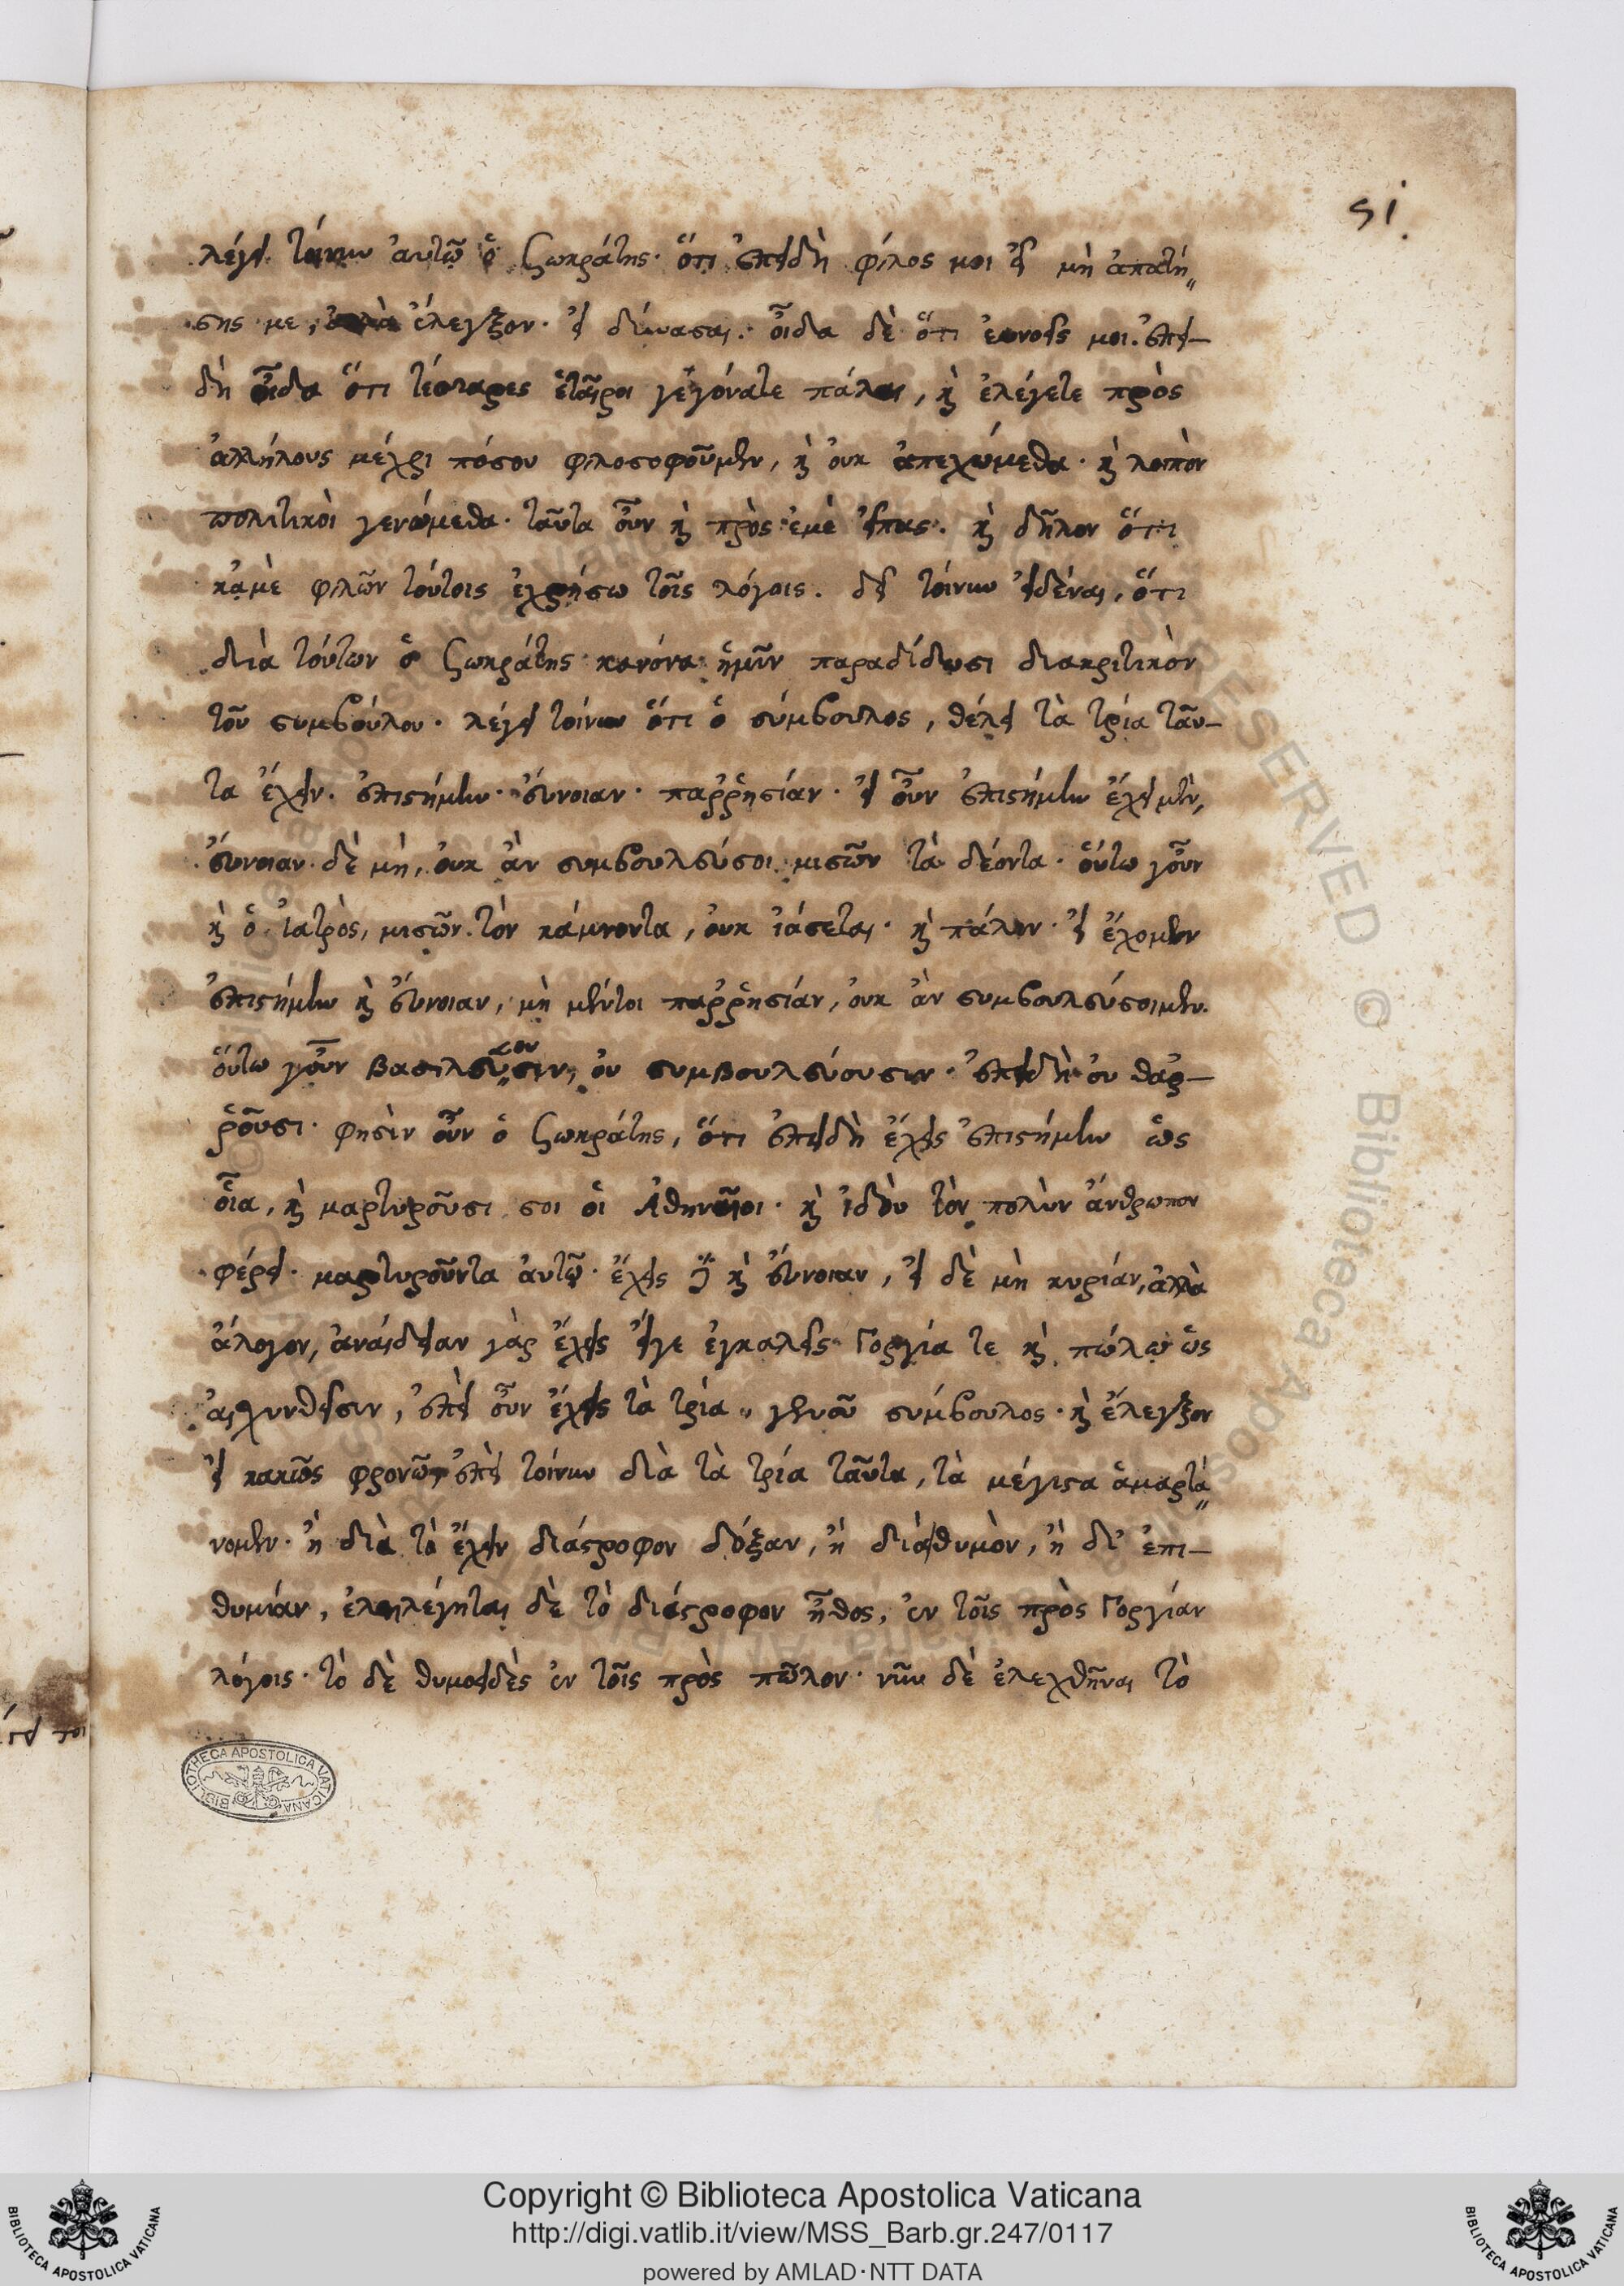 51.
λέγει τοίνυν αὐτῷ ὁ Σωκράτης· ὅτι ἐπειδὴ φίλος μοι εἶ μὴ ἀπατή
σης με, ἀλλὰ ἔλεγξον· εἰ δύνασαι· οἶδα δὲ ὅτι εὐνοεῖς μοι· ἐπει–
δὴ οἶδα ὅτι τέσσαρες ἑταῖροι γεγόνατε πάλαι, καὶ ἐλέγετε πρὸς
ἀλλήλους μέχρι πόσου φιλοσοφοῦμεν, καὶ οὐκ ἀπεχώμεθα· καὶ λοιπὸν
πολιτικοὶ γενώμεθα· ταῦτα οὖν καὶ πρὸς ἐμὲ εἶπας· καὶ δῆλον ὅτι
κἀμὲ φιλῶν τούτοις ἐχρήσω τοῖς λόγοις. δεῖ τοίνυν εἰδέναι, ὅτι
διὰ τούτων ὁ Σωκράτης κανόνα ἡμῖν παραδίδωσι διακριτικὸν
τοῦ συμβούλου· λέγει τοίνυν ὅτι ὁ σύμβουλος, θέλει τὰ τρία ταῦ–
τα ἔχειν· ἐπιστήμην· εὔνοιαν· παῤῥησίαν· εἰ οὖν ἐπιστήμην ἔχει μὲν,
εὔνοιαν δὲ μὴ, οὐκ ἂν συμβουλεύσοι μισῶν τὰ δέοντα· οὕτω γοῦν
καὶ ὁ ἰατρὸς, μισῶν τὸν κάμνοντα, οὐκ ἰάσεται· καὶ πάλιν· εἰ ἔχομεν
ἐπιστήμην καὶ εὔνοιαν, μὴ μέντοι παῤῥησίαν, οὐκ ἂν συμβουλεύσοιμεν.
οὕτω γοῦν βασιλεῦσιν, οὐ συμβουλεύουσιν· ἐπειδὴ οὐ θαῤ–
ῥοῦσι· φησὶν οὖν ὁ Σωκράτης, ὅτι ἐπειδὴ ἔχεις ἐπιστήμην ὡς
οἷα, καὶ μαρτυροῦσι σοι οἱ Ἀθηναῖοι· καὶ ἰδοὺ τὸν πολὺν ἄνθρωπον
φέρει· μαρτυροῦντα αὐτῷ· ἔχεις καὶ εὔνοιαν, εἰ δὲ μὴ κυρίαν, ἀλλὰ
ἄλογον, ἀναίδειαν γὰρ ἔχεις εἴγε ἐγκαλεῖς Γοργία τε καὶ πώλῳ ὡς
αἰσχυνθεῖσιν, ἐπεὶ οὖν ἔχεις τὰ τρία γενοῦ σύμβουλος· καὶ ἔλεγξον
εἰ κακῶς φρονῶ, ἐπεὶ τοίνυν διὰ τὰ τρία ταῦτα, τὰ μέγιστα ἁμαρτά
νομεν· ἢ διὰ τὸ ἔχειν διάστροφον δόξαν, ἢ διὰ θυμὸν, ἢ δι' ἐπι–
θυμίαν, δὲ τὸ διάστροφον ἦθος, ἐν τοῖς πρὸς Γοργίαν
λόγοις· τὸ δὲ θυμοειδὲς ἐν τοῖς πρὸς πῶλον· νῦν δὲ ἐλεχθῆναι τὸ
BIBLIOTHECA APOSTOLICA VATICANA
Copyright © Biblioteca Apostolica Vaticana
http://digi.vatlib.it/view/MSS_Barb.gr.247/0117
powered by AMLAD·NTT DATA
BIBLIOTECA APOSTOLICA VATICANA
BIBLIOTECA APOSTOLICA VATICANA